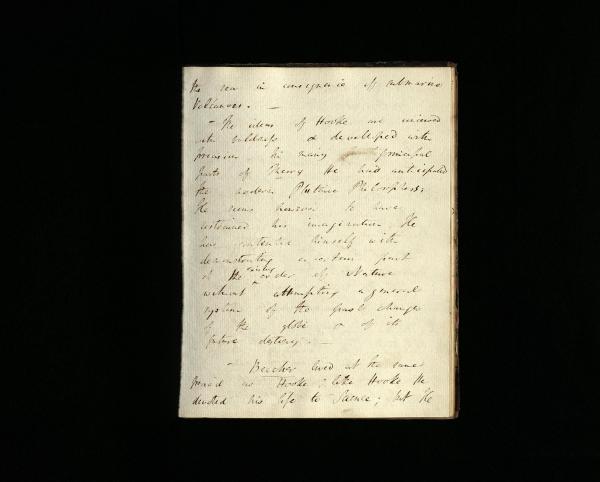 the sea in consequence of submarine
Volcanoes. —
— The ideas of Hooke are conceived
with boldness & developed with
precision. In many principal
parts of Theory He had anticipated
the modern Plutonic Philosophers.
He seems however to have
restrained his imagination. He
has contented himself with
demonstrating a certain part
of the existing order of Nature
without attempting a general
system of the past changes
of the globe or of its
future destiny. —
— Beccher lived at the same
period as Hooke; like Hooke He
devoted his life to Science; but He